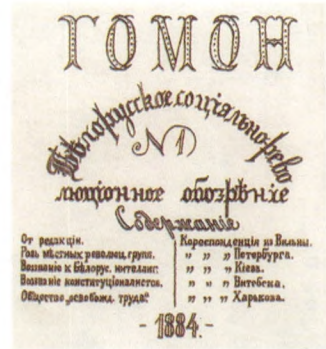 ГОМОН
Бѣлорусское соціально-рево
№ 1
люціонное обозрѣніе
Содержаніе
От редакціи.
Роль мѣстных революц. групп.
Воззваніе к Бѣлорус. интелиг.
Воззваніе конституціоналистов.
Общество „освобожд. труда"
Кореспонденція из Вильны.
„ „ „ Петербурга.
„ „ „ Кіева.
„ „ „ Витебска.
„ „ „ Харькова.
- 1884. -